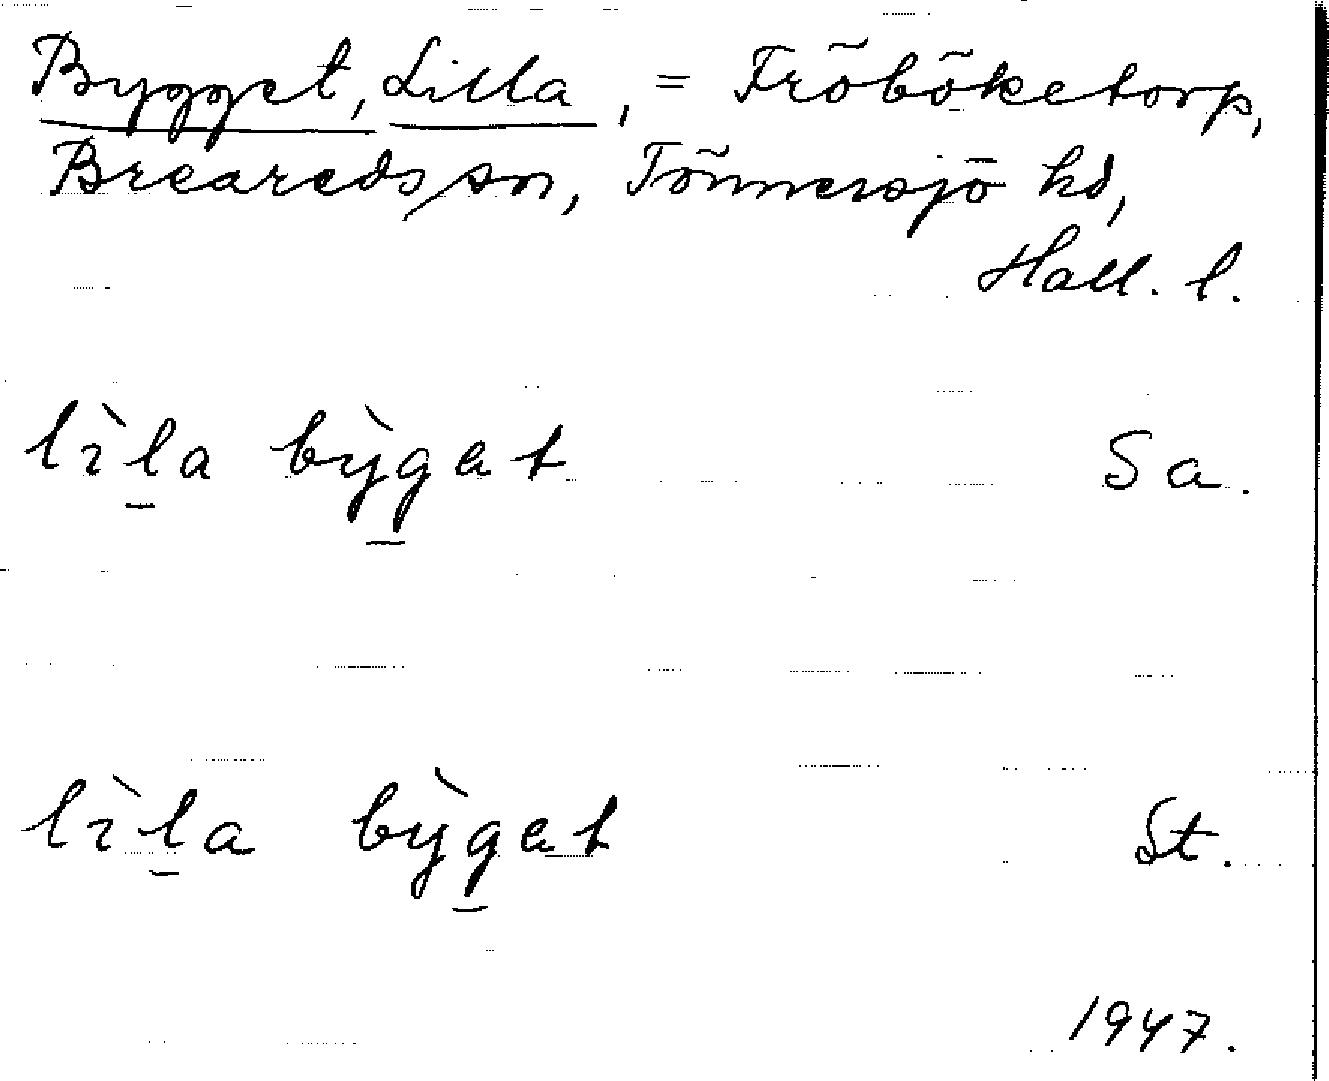 Bygget, Lilla, = Fröböketorp,
Brearedssn, Tönnersjö hd,
Hall. l.
lìla bỳgat Sa.
lìla bỳgat St.
1947.